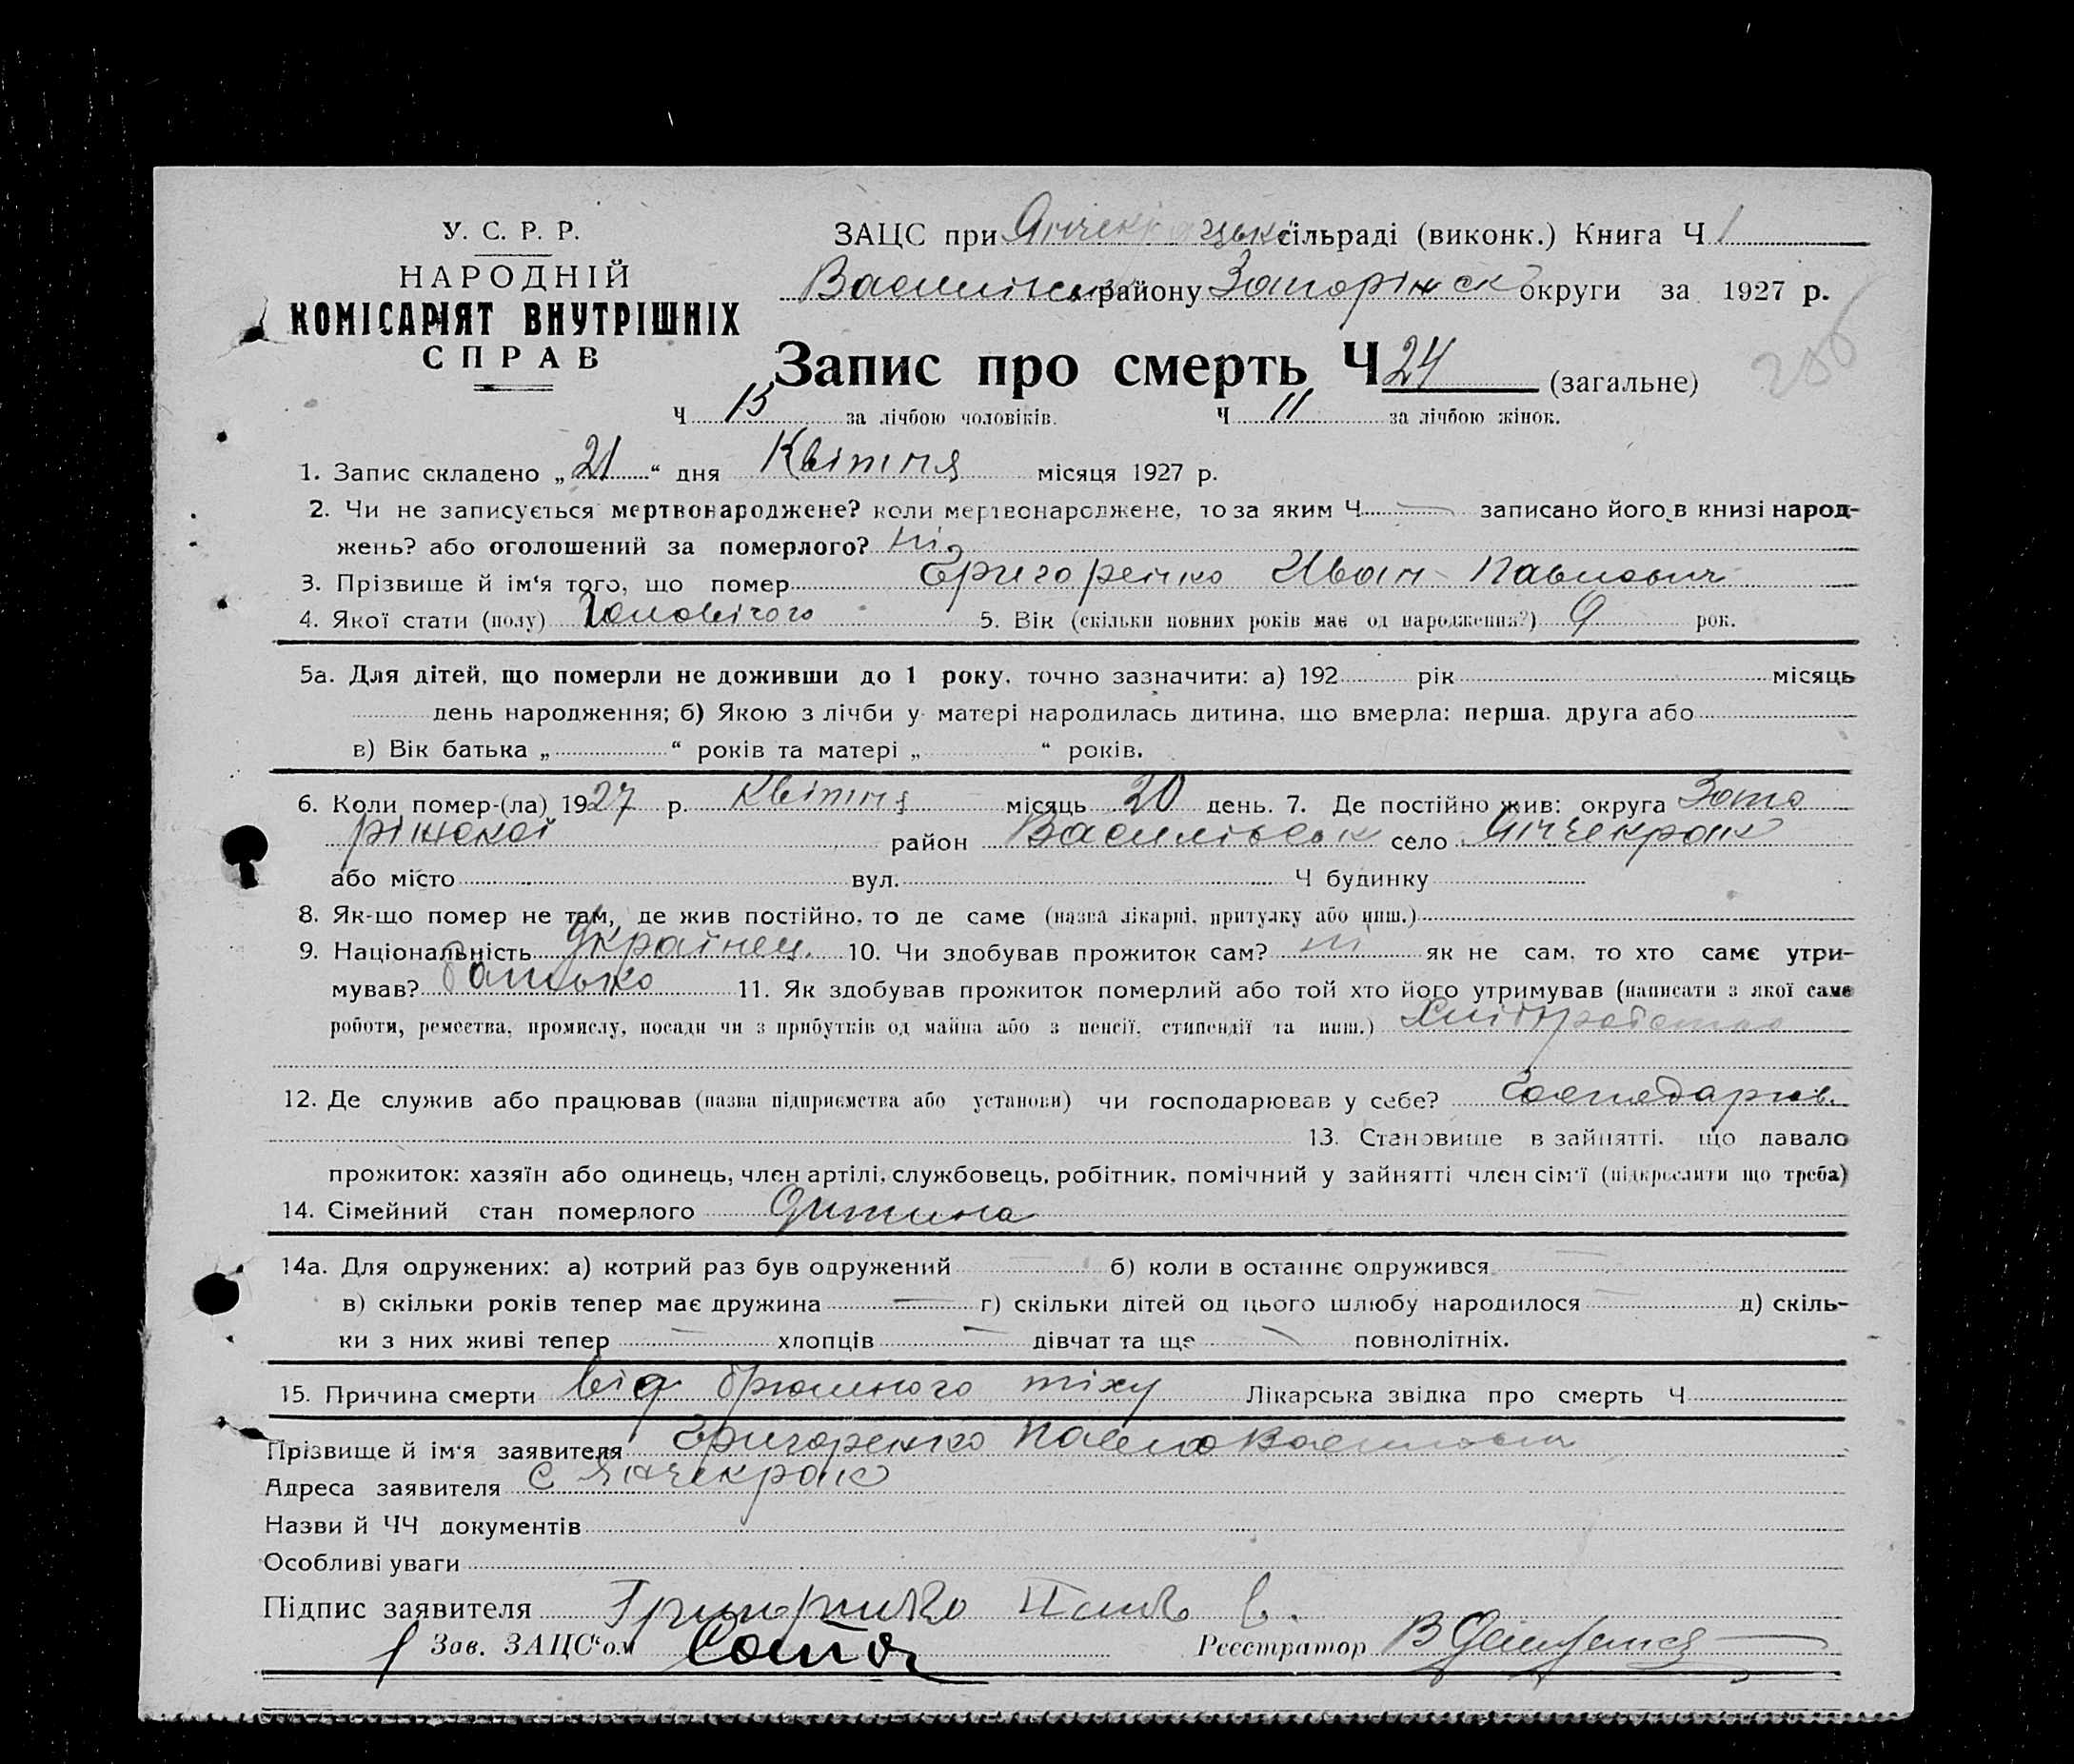 У. С. Р. Р.
НАРОДНІЙ
КОМІСАРІЯТ ВНУТРІШНІХ
СПРАВ
ЗАЦС при Янчекрацькі сільраді (виконк.) Книга Ч 1
Васильськ району Запоріжськ округи за 1927 р.
206
Запис про смерть Ч 24 (загальне)
Ч 15 за лічбою чоловіків. Ч 11 за лічбою жінок.
1. Запис складено „ 21 “ дня Квітня місяця 1927 р.
2. Чи не записується мертвонароджене? коли мертвонароджене, то за яким Ч — записано його в книзі народ-
жень? або оголошений за померлого? ні
3. Прізвище й ім‘я того, що помер Григоренко Иван Павлович
4. Якої стати (полу) Чоловічого 5. Вік (скільки повних років має од народження?) 9 рок.
5а. Для дітей, що померли не доживши до 1 року, точно зазначити: а) 192 рік місяць
день народження; б) Якою з лічби у матері народилась дитина, що вмерла: перша. друга або
в) Вік батька „ “ років та матері „ “ років.
6. Коли помер-(ла) 1927 р. Квітня місяць 20 день. 7. Де постійно жив: округа Запо
ріжської район Васильськ село Янчекрак
або місто вул. Ч будинку
8. Як-що помер не там, де жив постійно, то де саме (назва лікарні, притулку або инш.)
9. Національність Українец. 10. Чи здобував прожиток сам? ні як не сам, то хто саме утри-
мував? батько 11. Як здобував прожиток померлий або той хто його утримував (написати з якої саме
роботи, ремества, промислу, посади чи з прибутків од майна або з пенсії, стипендії та инш.)
12. Де служив або працював (назва підприємства або установи) чи господарював у себе? Господарюв.
13. Становище в зайнятті, що давало
прожиток: хазяїн або одинець, член артілі, службовець, робітник, помічний у зайнятті член сім‘ї (підкреслити що треба)
14. Сімейний стан померлого дитина
14а. Для одружених: а) котрий раз був одружений — б) коли в останнє одружився —
в) скільки років тепер має дружина — г) скільки дітей од цього шлюбу народилося — д) скіль-
ки з них живі тепер — хлопців — дівчат та ще — повнолітніх.
15. Причина смерти від брюшного тіху Лікарська звідка про смерть Ч
Прізвище й ім‘я заявителя Григоренко Павло Васильович
Адреса заявителя с Янчекрак
Назви й ЧЧ документів
Особливі уваги
Підпис заявителя Павло В.
Зав. ЗАЦС‘ом Реєстратор